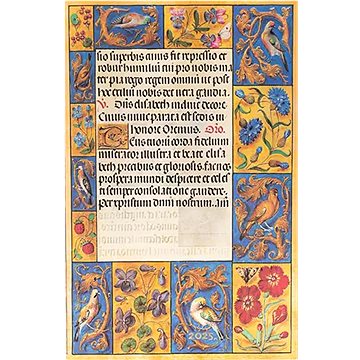 sio superbis animis fit repressio et
robur humilium qui pio nobis ma
ter pia rogo regem omnium ut post
hec exilium nobis det vera gaudia
V. Ora elisabeth in diuie decore
Cuius nunc parat est sedis in
honore Oremus. Oro.
Tuorum corda fidelium
miserator illustra et beate elisa
beth precibus et gloriosis. fac nos
prospera mundi despicere et celes
ti semper consolatione gaudere.
per xpristum dnm nostrum. am
2025